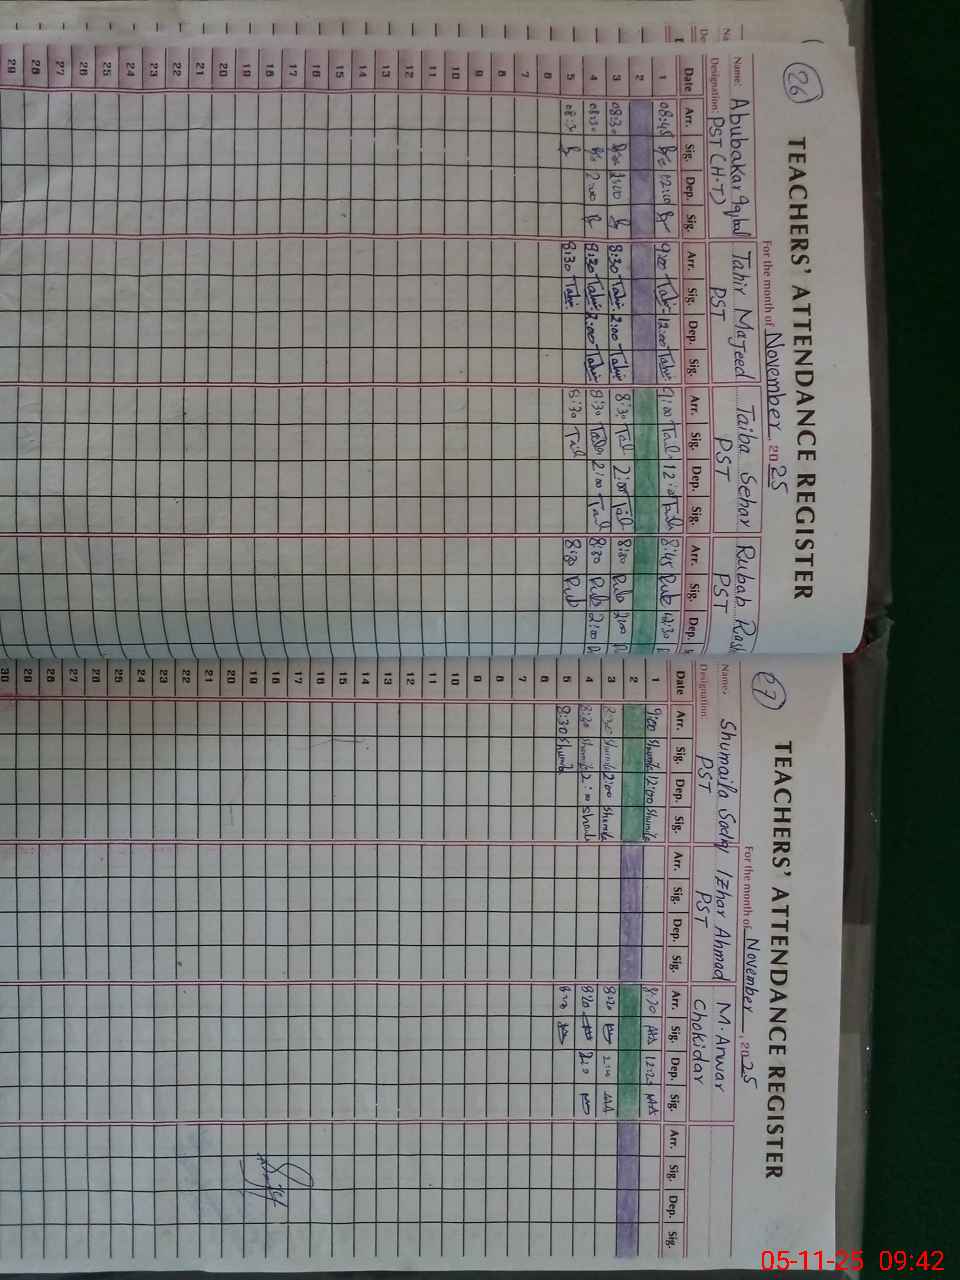 26
TEACHERS' ATTENDANCE REGISTER
For the month of November, 2025
Name: Abubakar Iqbal Tahir Majeed Taiba Sehar Rubab
Designation: PST (H.T) PST PST PST
Date Arr. Sig. Dep. Sig. Arr. Sig. Dep. Sig. Arr. Sig. Dep. Sig. Arr. Sig. Dep.
1 08:45 12:10 9:00 Tahir 12:00 Tahir 9:00 12:00 8:45 Rub 12:30
2
3 08:30 2:00 8:30 Tahir 2:00 Tahir 8:30 2:00 8:30 Rub 2:00
4 08:30 2:00 8:30 Tahir 2:00 Tahir 8:30 2:00 8:30 Rub 2:00
5 08:30 8:30 Tahir 8:30 8:30 Rub
6
7
8
9
10
11
12
13
14
15
16
17
18
19
20
21
22
23
24
25
26
27
28
29
27
TEACHERS' ATTENDANCE REGISTER
For the month of November, 2025
Name: Shumaila Sadiq Izhar Ahmad M. Anwar
Designation: PST PST Chokidar
Date Arr. Sig. Dep. Sig. Arr. Sig. Dep. Sig. Arr. Sig. Dep. Sig. Arr. Sig. Dep. Sig.
1 9:00 Shumila 12:00 Shumila 8:30 12:20
2
3 8:30 Shumila 2:00 Shumila 8:20 2:00
4 8:30 Shumila 2:00 Shumila 8:20 2:0
5 8:30 Shumila 8:20
6
7
8
9
10
11
12
13
14
15
16
17
18
19
20
21
22
23
24
25
26
27
28
29
30
05-11-25 09:42